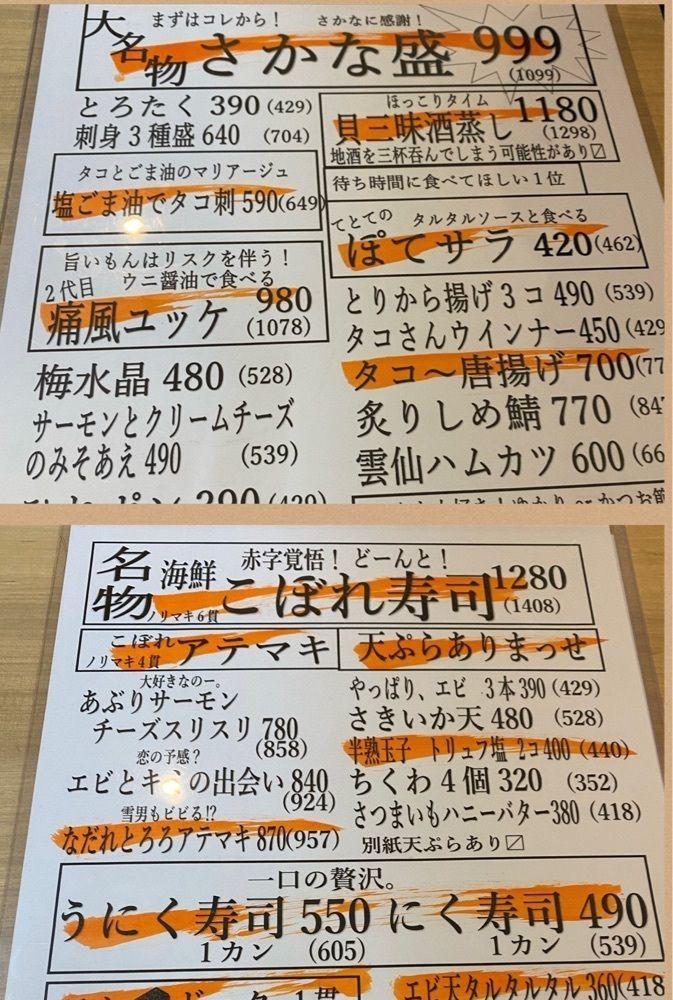 大名物 まずはコレから！ さかなに感謝！
さかな盛 999
(1099)
とろたく 390 (429)
刺身3種盛 640 (704)
タコとごま油のマリアージュ
塩ごま油でタコ刺 590(649)
旨いもんはリスクを伴う！
2代目 ウニ醤油で食べる
痛風ユッケ 980
(1078)
梅水晶 480 (528)
サーモンとクリームチーズ
のみそあえ 490 (539)
290 (429)
ほっこりタイム
貝三昧酒蒸し 1180
(1298)
地酒を三杯呑んでしまう可能性があり〼
待ち時間に食べてほしい1位
てとての タルタルソースと食べる
ぽてサラ 420(462)
とりから揚げ3コ 490 (539)
タコさんウインナー450(429
タコ〜唐揚げ 700(77
炙りしめ鯖 770 (847
雲仙ハムカツ 600(66
ゆかり or かつお節
名物 海鮮 赤字覚悟！ どーんと！
こぼれ寿司 1280
ノリマキ6貫 (1408)
こぼれ
ノリマキ4貫 アテマキ
大好きなのー。
あぶりサーモン
チーズスリスリ 780
(858)
恋の予感？
エビとキ の出会い 840
(924)
雪男もビビる!?
なだれとろろアテマキ 870(957)
天ぷらありまっせ
やっぱり、エビ 3本390 (429)
さきいか天 480 (528)
半熟玉子 トリュフ塩 2コ400 (440)
ちくわ4個 320 (352)
さつまいもハニーバター380 (418)
別紙天ぷらあり〼
一口の贅沢。
うにく寿司 550 にく寿司 490
1カン (605) 1カン (539)
1貫
エビ天タルタルタル 360(418